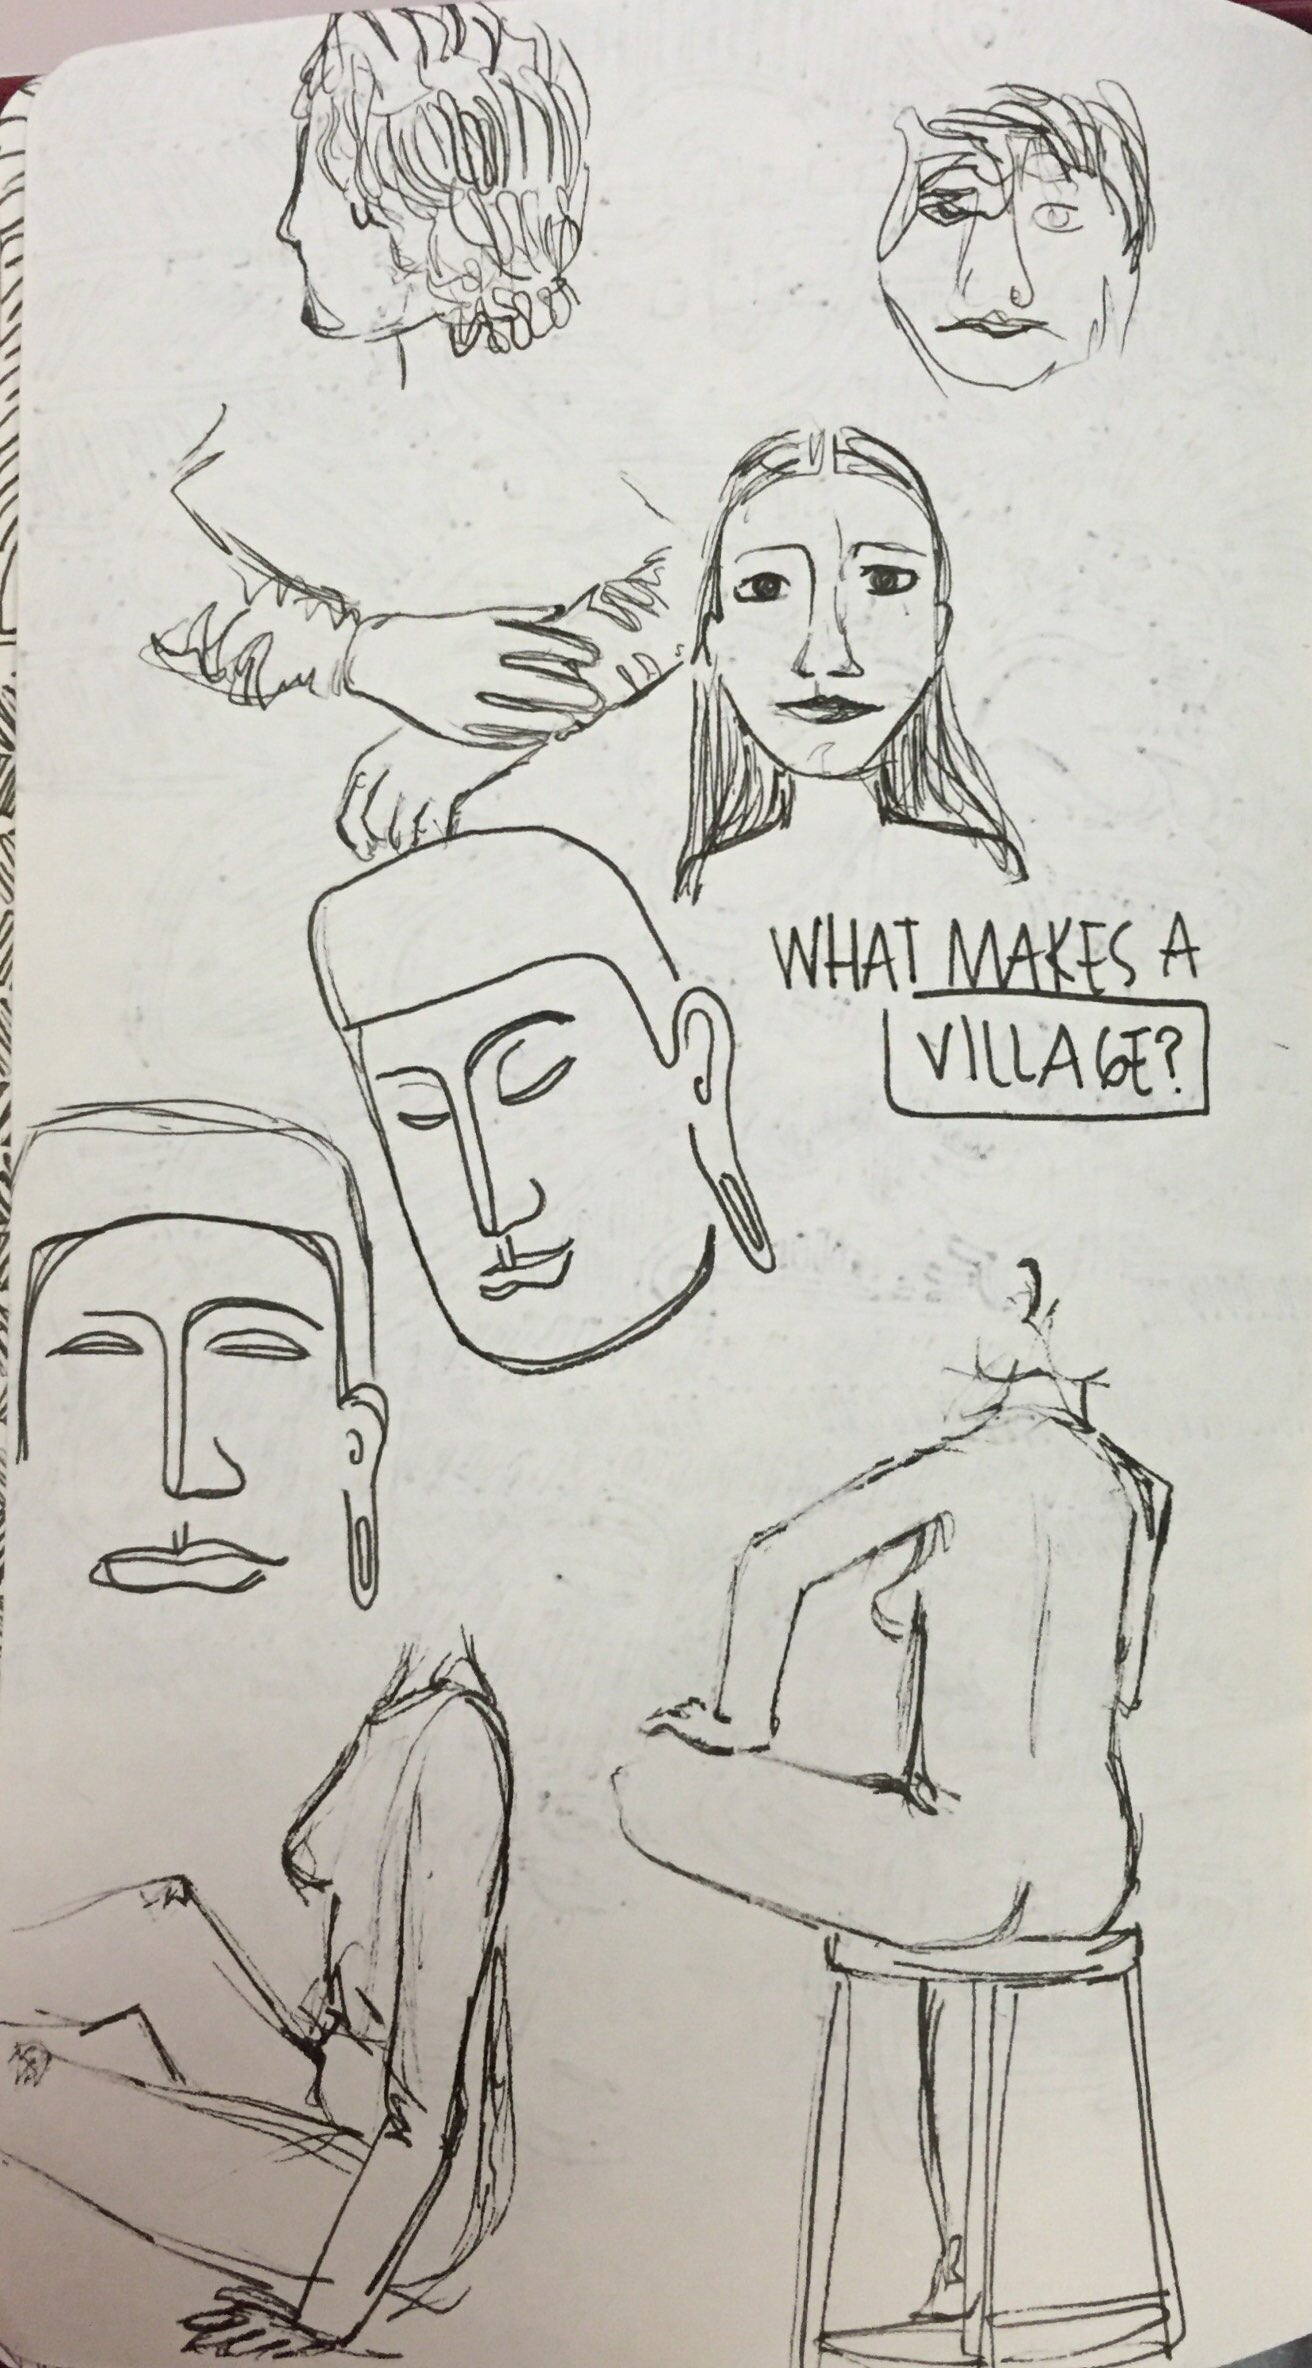 WHAT MAKES A
VILLAGE?